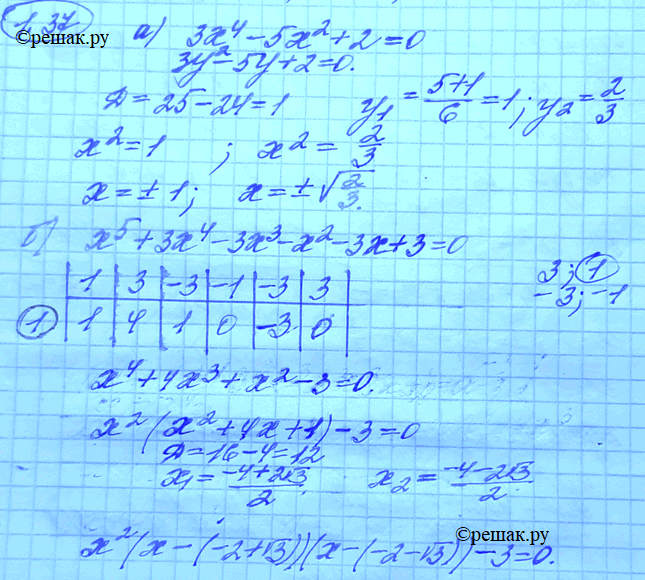 1.37
©решак.ру
а) 3x⁴ - 5x² + 2 = 0
3y² - 5y + 2 = 0.
D = 25 - 24 = 1 y₁ = (5+1)/6 = 1; y₂ = 2/3
x² = 1 ; x² = 2/3
x = ± 1; x = ±√(2/3).
б) x⁵ + 3x⁴ - 3x³ - x² - 3x + 3 = 0
3; 1
-3; -1
| 1 | 3 | -3 | -1 | -3 | 3 |
1 | 1 | 4 | 1 | 0 | -3 | 0 |
x⁴ + 4x³ + x² - 3 = 0.
x²(x² + 4x + 1) - 3 = 0
D = 16 - 4 = 12
x₁ = (-4 + 2√3)/2 x₂ = (-4 - 2√3)/2
©решак.ру
x²(x - (-2 + √3))(x - (-2 - √3)) - 3 = 0.